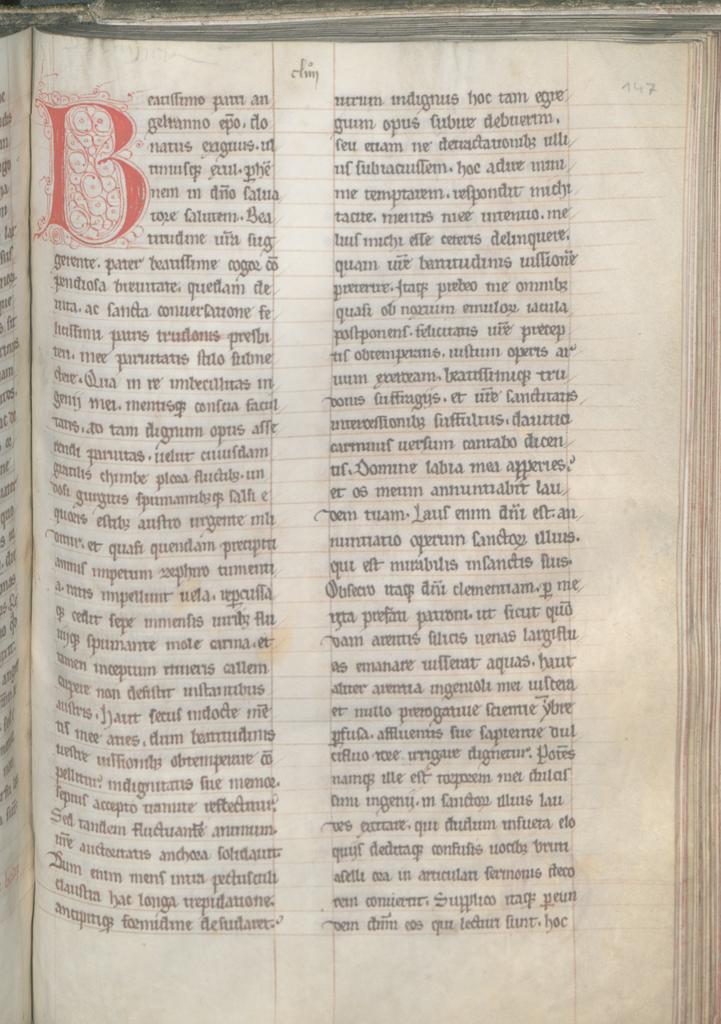 cliiij
147
Beatissimo patri an
gelranno epo. do
natus exiguus. ul
timusq exul. phe
nem in dno salua
tore salutem. Bea
titudine ura sug
gerente. pater beatissime cogor co
pendiosa breuitate. quedam de
uita. ac sancta conuersatione fe
licissimi patris trudonis presbi
teri. mee paruitatis stilo subne
ctere. Qua in re imbecillitas in
genij mei. mentisq conscia facul
tatis. ad tam dignum opus asse
rendi paruitas. uelut cuiusdam
gracilis cimbe plora fluctib. un
dosi gurgitis spumantibusq salsi e
quoris estib; austro urgente
et quasi quendam precipiti
amnis impetum zephiro tumenti
a. ratis impellunt uela. repcussa
q; cedit sepe inmensis uirib; flu
ijsq; spumante mole carina. et
tamen inceptum itineris callem
carpere non desistit instantibus
austris. Haut secus indocte me
tis mee aries. dum beatitudinis
uestre iussionib; obtemperare co
pellitur. indignitatis sue memor.
sepius accepto tramite reflectitur.
Sed tandem fluctuante animum.
ure auctoritatis anchora solidauit.
Dum enim mens intra pectusculi
claustra hac longa trepidatione.
ancipitiq; formidine desudaret.
utrum indignus hoc tam egre
gium opus subire debuerim.
seu etiam ne detractationib; ulli
us subiacuissem. hoc adire mini
me temptarem. respondit michi
tacite. mentis mee intentio. me
lius michi esse ceteris delinquere.
quam ure beatitudinis iussione
preterire. Itaq; prebeo me omnib;
quasi ob noxium emulor iacula
postponens. felicitatis ure precep
tis obtemperans. iustum operis ar
uum exerceam. beatissimiq; tru
donis suffragijs. et ure sanctitatis
intercessionib; suffultus. dauitici
carminis uersum cantabo dicen
tis. Domine labia mea apperies.
et os meum annuntiabit lau
dem tuam. Laus enim dni est. an
nuntiatio operum sanctor illius.
qui est mirabilis in sanctis suis.
Obsecro itaq; dni clementiam. p me
ritа prefati patroni. ut sicut quo
dam arentis silicis uenas largiflu
as emanare iusserat aquas. haut
aliter arentia ingenioli mei uiscera
et nullo prerogatiue scientie ybre
pfusa. affluentis sue sapientie dul
cifluo rore irrigare dignetur. Potes
namq; ille est torporem mei dulcis
simi ingenij. in sanctor illius lau
des excitare. qui dudum insueta elo
quijs deditaq; confusis uocib; bruti
aselli ora in articulati sermonis deco
rem conuertit. Supplico itaq; peun
dem dnm eos qui lecturi sunt. hoc